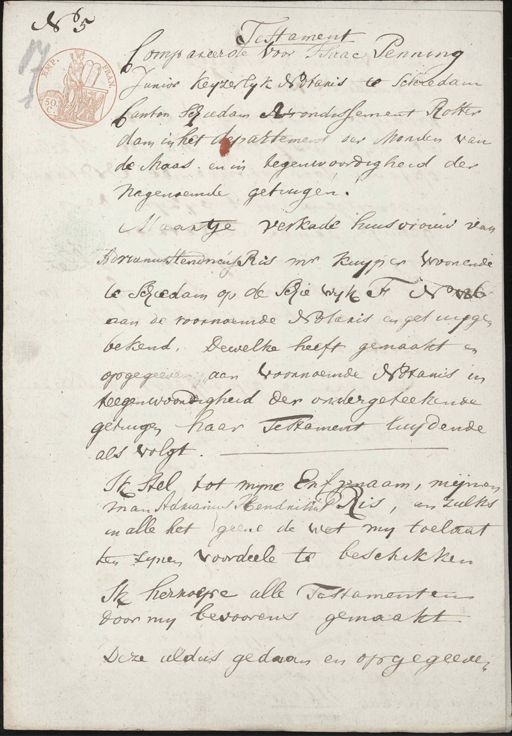 No 5
Testament
Compareerde voor Isaac Penning
Junior Keyzerlyk Notaris te Schiedam
Canton Schiedam Arrondissement Rotter
dam in het departement der Monden van
de Maas en in tegenwoordigheid der
nagenoemde getuigen.
Maartje Verkade huisvrouw van
Adrianus Hendricus Ris mr kuyper woonende
te Schiedam op de Schie wyk F No
aan de voornoemde Notaris en getuygen
bekend. Dewelke heeft gemaakt en
opgegeeven aan voornoemde Notaris in
teegenwoordigheid der ondergeteekende
getuygen haar Testament luydende
als volgt.
Ik Stel tot myne Erfgenaam, mijnen
man Adrianus Hendrikus Ris, en zulks
in alle het geene de wet my toelaat
ten zynen voordeele te beschikken
Ik herroepe alle Testamenten
door my bevoorens gemaakt
Deze aldus gedaan en opgegeeven
EMP. FRAN.
50